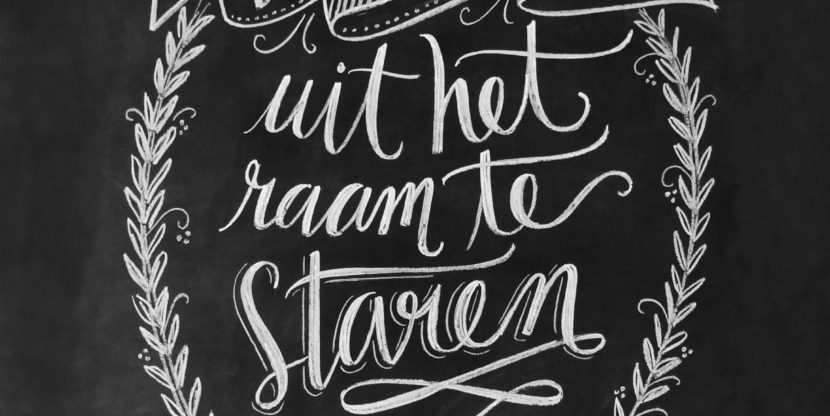 uit het
raam te
Staren